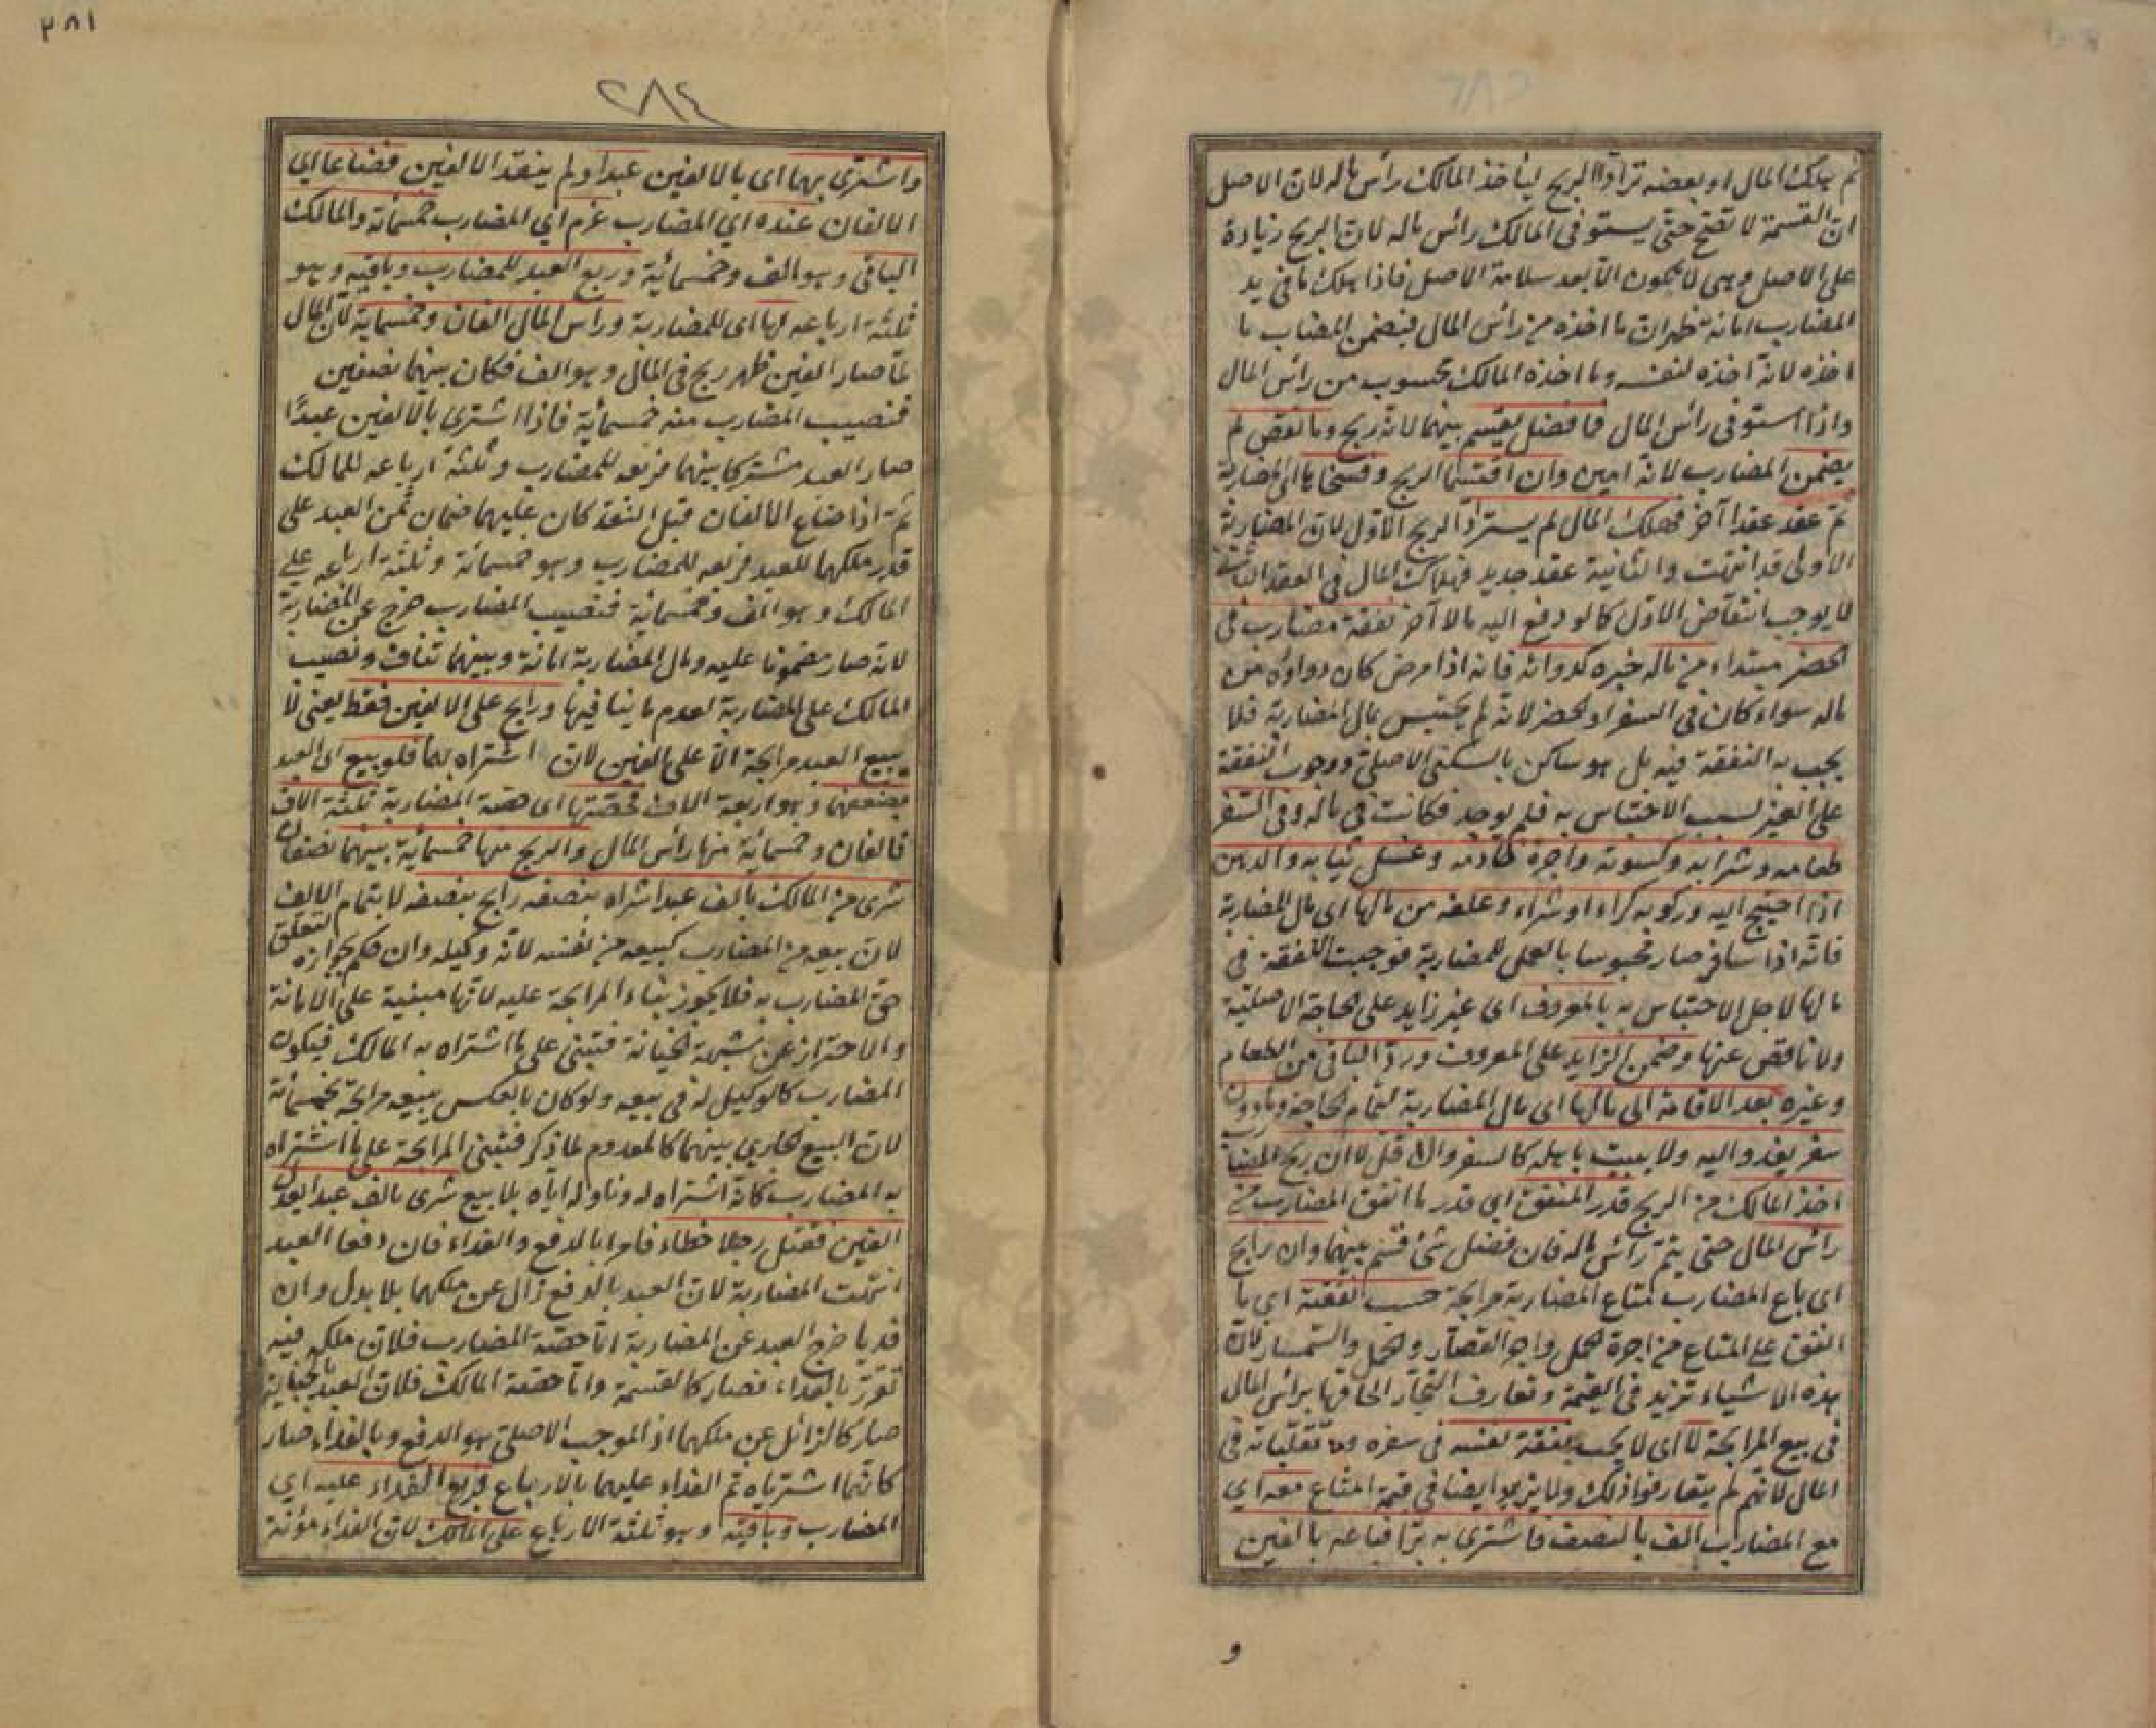 ثم يهلك المال او بعضه ترادّا الربح ليأخذ المالك رأس ماله لان الاصل
ان القسمة لا تصح حتى يستوفى المالك رائس ماله لان الربح زيادة
على الاصل وهى لا تكون الّا بعد سلامة الاصل فاذا هلك ما فى يد
المضارب امانة ظهر ان ما اخذه من رائس المال فيضمن المضارب ما
اخذه لانه اخذه لنفسه وما اخذه المالك محسوب من رائس المال
واذا استوفى رائس المال فما فضل يقسم بينهما لانه ربح وما نقص لم
يضمن المضارب لانه امين وان اقتسما الربح وفسخاها اى المضاربة
ثم عقد عقدا آخر فهلك المال لم يسترادّا الربح الاول لان المضاربة
الاولى قد انتهت والثانية عقد جديد فهلاك المال فى العقد الثانى
لا يوجب انتقاض الاول كما لو دفع اليه مالا آخر نفقة مضارب فى
الحضر مبتداء من ماله خبره كدوائه فانه اذا مرض كان دواؤه من
ماله سواء كان فى السفر او الحضر لانه لم يحتبس بمال المضاربة فلا
يجب به النفقة فيه بل هو ساكن بالسكنى الاصلى ووجوب النفقة
على الغير بسبب الاحتباس به فلم يوجد فكانت فى ماله وفى السفر
طعامه وشرابه وكسوته واجرة خادمه وغسل ثيابه والدهن
اذا احتيج اليه وركوبه كراء او شراء وعلفه من مالها اى مال المضاربة
فانه اذا سافر صار محبوسا بالعمل للمضاربة فوجبت النفقة فى
مالها لاجل الاحتباس به بالمعروف اى غير زايد على الحاجة الاصلية
ولا ناقص عنها وضمن الزايد على المعروف وردّ الباقى من الطعام
وغيره بعد الاقامة الى مالها اى مال المضاربة لتمام الحاجة وما دون
سفر يغدو اليه ولا يبيت باهله كالسفر والا فلا ان ربح المضارب
اخذ المالك من الربح قدر المنفق اي قدر ما انفق المضارب من
رائس المال حتى يتم رائس ماله فان فضل شئ قسم بينهما وان رابح
اى باع المضارب متاع المضاربة مرابحة حسب النفقة اي ما
انفق على المتاع من اجرة الحمل واجر القصار والحمل والسمسار لان
هذه الاشياء تزيد فى القيمة وتعارف التجار الحاقها برائس المال
فى بيع المرابحة لا اى لا يحسب نفقة نفسه فى سفره وتقلّباته فى
المال لانهم لم يتعارفوا ذلك ولا يزيد ايضا فى قيمة المتاع معه اي
مع المضارب الف بالنصف فاشترى به بزّا فباعه بالفين
و
٣٨١
٢٨٤
واشترى بهما اى بالالفين عبدا ولم ينقد الالفين فضاعا اي
الالفان عنده اي المضارب غرم اي المضارب خمسمائة والمالك
الباقى وهو الف وخمسمائة وربع العبد للمضارب وباقيه وهو
ثلثة ارباعه لها اى للمضاربة ورأس المال الفان وخمسماية لان المال
لمّا صار الفين ظهر ربح فى المال وهو الف فكان بينهما نصفين
فنصيب المضارب منه خمسمائة فاذا اشترى بالالفين عبدًا
صار العبد مشتركا بينهما فربعه للمضارب وثلثة ارباعه للمالك
ثم اذا ضاع الالفان قبل النقد كان عليهما ضمان ثمن العبد على
قدر ملكهما للعبد فربعه للمضارب وهو خمسمائة وثلثة ارباعه على
المالك وهو الف وخمسماية فنصيب المضارب خرج عن المضاربة
لانه صار مضمونا عليه ومال المضاربة امانة وبينهما تناف ونصيب
المالك على المضاربة لعدم ما ينافيها ورابح على الالفين فقط يعنى لا
يبيع العبد مرابحة الّا على الفين لان اشتراه بهما فلو بيع اى العبد
بضعفهما وهو اربعة الاف فحصتها اى حصة المضاربة ثلثة الاف
فالفان وخمسمائة منها رأس المال والربح منها خمسمائة بينهما نصفان
شرى من المالك بالف عبدا شراه بنصفه رابح بنصفه لا بتمام الالف
لان بيعه من المضارب كبيعه من نفسه لانه وكيله وان حكم بجوازه لتعلق
حق المضارب به فلا يجوز بناء المرابحة عليه لانها مبنية على الامانة
والاحتراز عن شبهة الخيانة فتبنى على ما اشتراه به المالك فيكون
المضارب كالوكيل له فى بيعه ولو كان بالعكس يبيعه مرابحة بخمسمائة
لان البيع الجاري بينهما كالمعدوم لما ذكر فتبنى المرابحة على ما اشتراه
به المضارب كانه اشتراه له وناوله اياه بلا بيع شرى بالف عبدا يعدل
الفين فقتل رجلا خطاء فامرا بالدفع والفداء فان دفعا العبد
انتهت المضاربة لان العبد بالدفع زال عن ملكهما بلا بدل وان
فديا خرج العبد عن المضاربة اما حصة المضارب فلان ملكه فيه
تقرر بالفداء فصار كالقسمة واما حصة المالك فلان العبد بالجناية
صار كالزائل عن ملكهما اذ الموجب الاصلى هو الدفع وبالفداء صار
كانهما اشترياه ثم الفداء عليهما بالارباع فربع الفداء عليه اي
المضارب وباقيه وهو ثلثة الارباع على المالك لان الفداء مؤنة